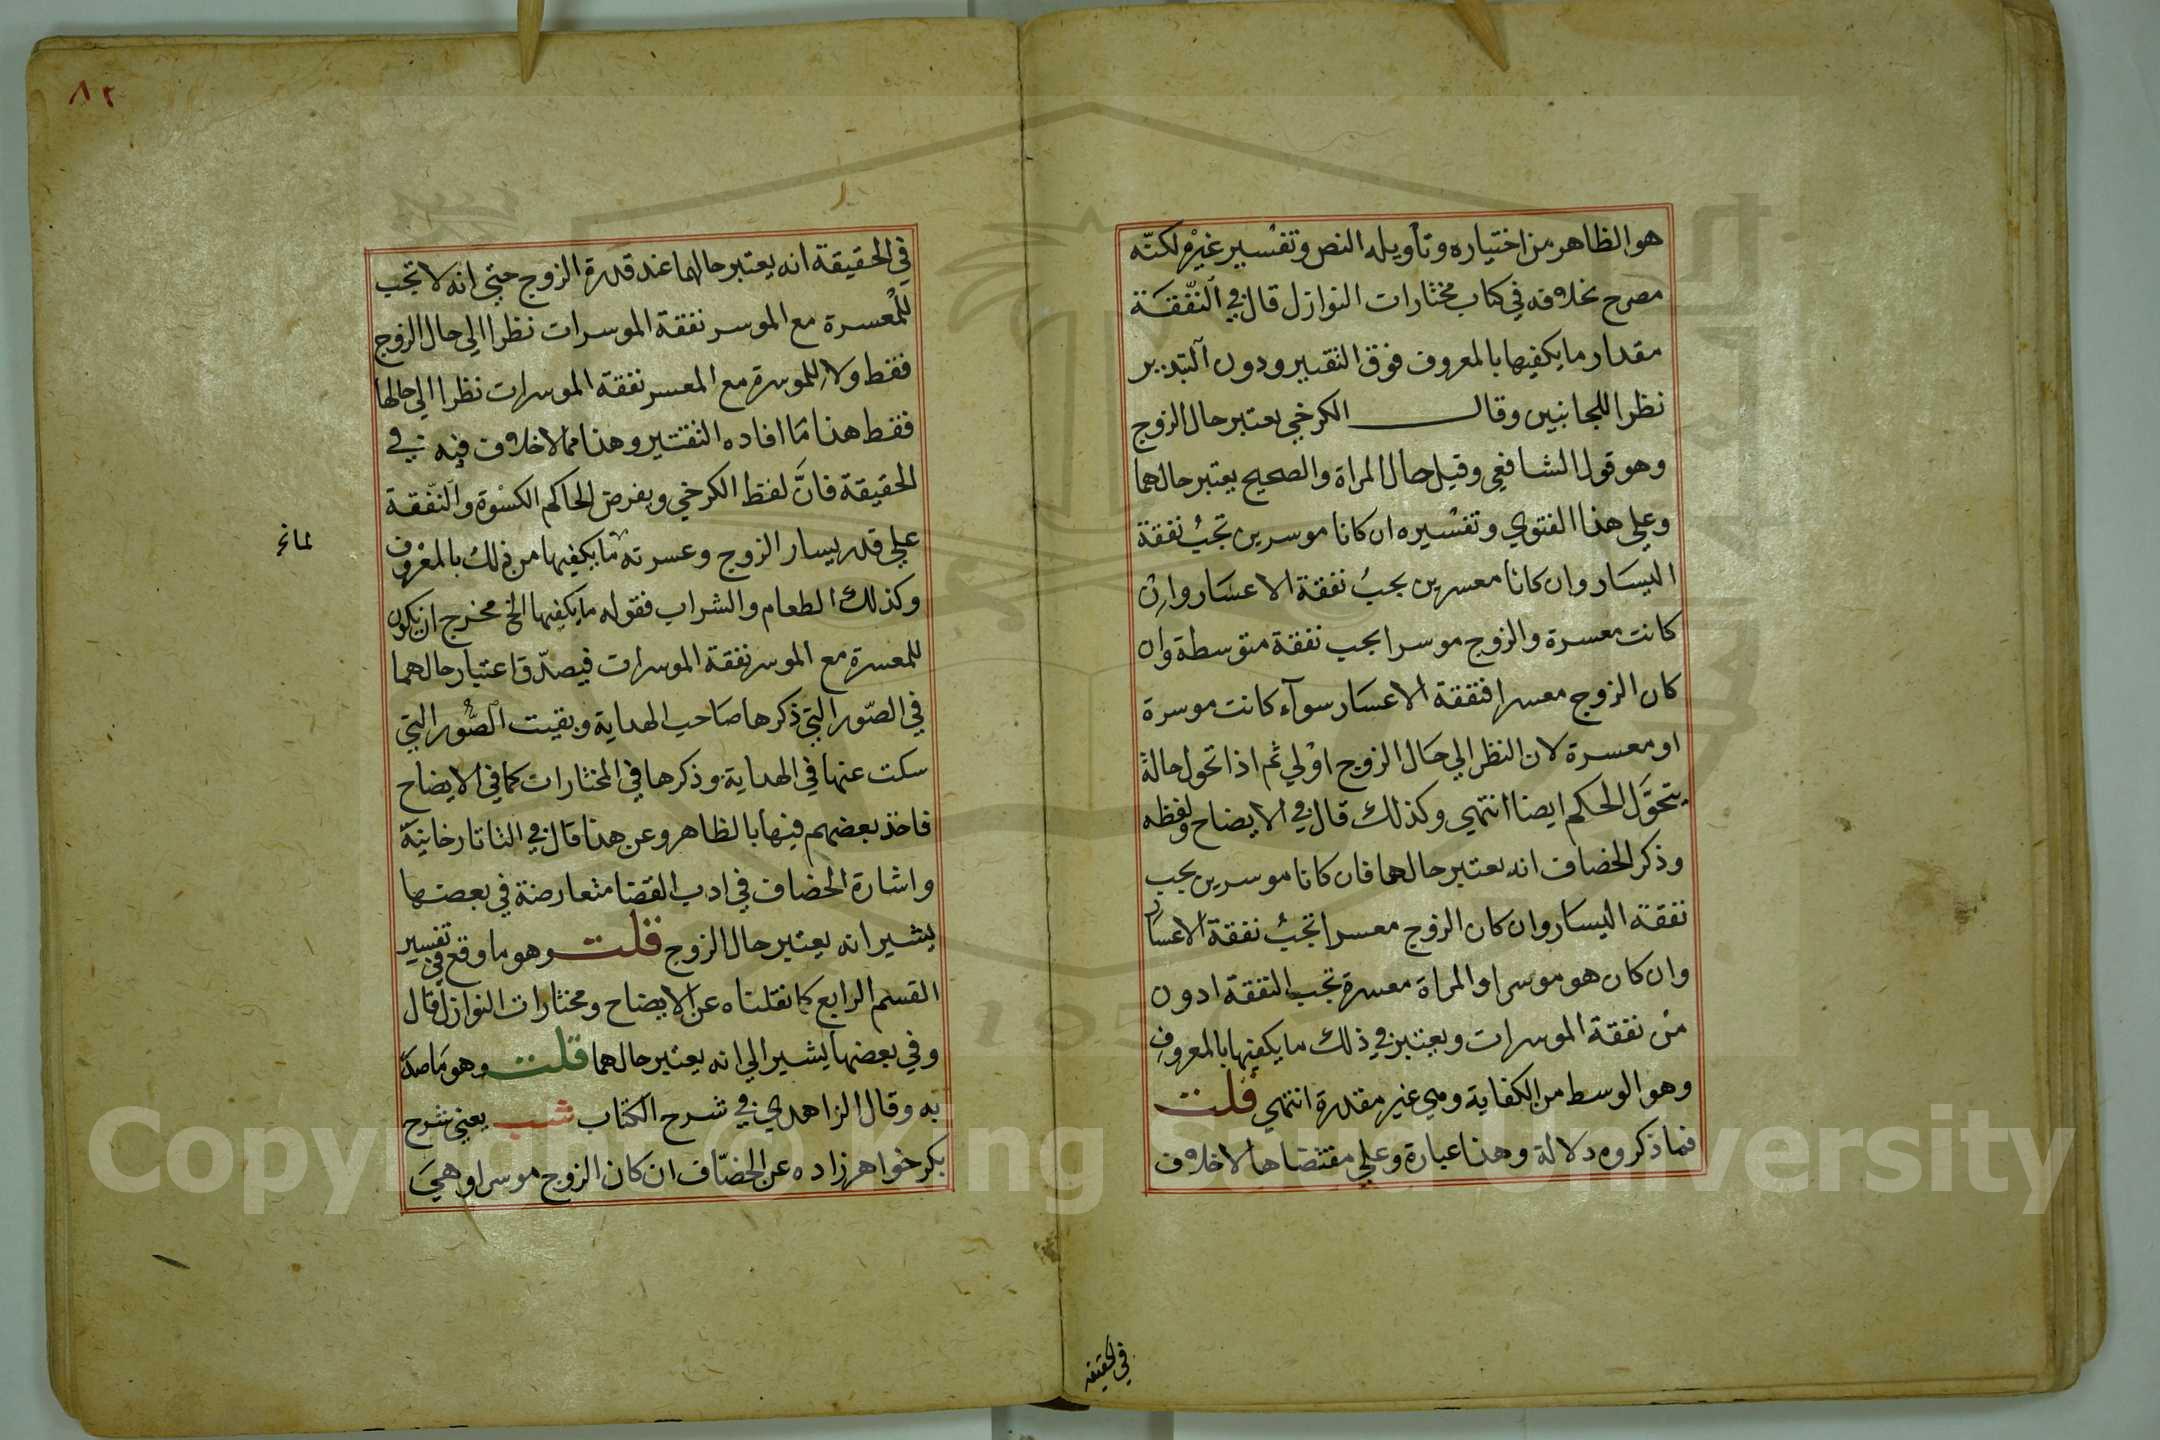 هو الظاهر من اختياره وتأويله النص وتفسير غيره لكنّه
مصرح بخلافه في كتاب مختارات النوازل قال في النّفقة
مقدار ما يكفيها بالمعروف فوق التقتير ودون التبذير
نظرا للجانبين وقال الكرخي يعتبر حال الزوج
وهو قول الشافعي وقيل حال المراة والصحيح يعتبر حالهما
وعلي هذا الفتوي وتفسيره ان كانا موسرين تجبُ نفقة
اليسار وان كانا معسرين يجبُ نفقة الاعسار وان
كانت معسرة والزوج موسرا يجب نفقة متوسطة وان
كان الزوج معسرا فنفقة الاعسار سوآء كانت موسرة
او معسرة لان النظر الي حال الزوج اوْلي ثم اذا تحول حالة
يتحوّل الحكم ايضا انتهي وكذلك قال في الايضاح ولفظه
وذكر الخصاف انه يعتبر حالهما فان كانا موسرين يجب
نفقة اليسار وان كان الزوج معسرا تجبُ نفقة الاعسار
وان كان هو موسرا والمراة معسرة تجب النفقة ادون
من نفقة الموسرات ويعتبر في ذلك ما يكفيها بالمعروف
وهو الوسط من الكفاية وهي غير مقدرة انتهي قلت
فما ذكروه دلالة وهذا عبارة وعلي مقتضاها لا خلاف
في الحقيقة
٨٢
في الحقيقة انه يعتبر حالهما عند قدرة الزوج حتي انه لا تجب
للمُعسرة مع الموسر نفقة الموسرات نظرا الي حال الزوج
فقط ولا للموسرة مع المعسر نفقة الموسرات نظرا الي حالها
فقط هذا مَا افاده التفتير وهذا مما لا خلاف فيه في
الحقيقة فانَّ لفظ الكرخي ويفرض الحاكم الكسْوة والنّفقة
علي قدر يسار الزوج وعسرته ما يكفيها من ذلك بالمعْروف
وكذلك الطعام والشراب فقوله ما يكفيها الخ مخرج ان يكون
للمعسرة مع الموسر نفقة الموسرات فيصدّق اعتبار حالهما
في الصّور التي ذكرها صَاحب الهداية وبقيت الصُّور التي
سكت عنها في الهداية وذكرها في المختارات كما في الايضاح
فاخذ بعضهم فيها بالظاهر وعن هذا قال في التاتارخانيّة
واشارة الخصاف في ادب القضا متعارضة في بعضها
يشير انه يعتبر حال الزوج قلت وهو ما وقع في تفسير
القسم الرابع كما نقلناه عن الايضاح ومختارات النوازل قال
وفي بعضها يشير الي انه يعتبر حالهما قلت وهو مَا صدّ
به وقال الزاهدي في شرح الكتاب شب يعني شرح
بكر خواهر زاده عن الخصّاف ان كان الزوج موسرا وهيَ